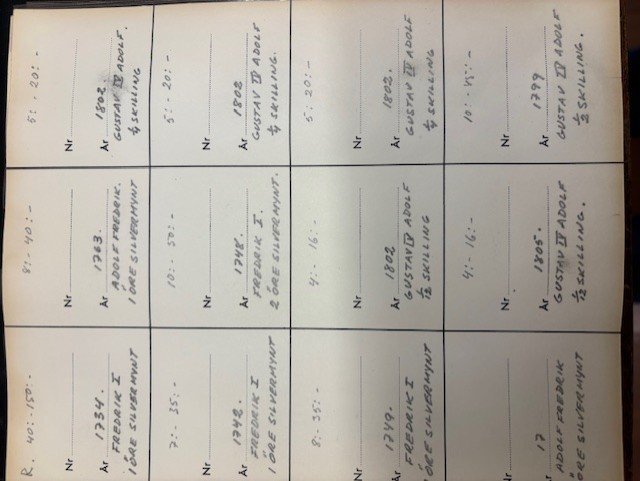 R. 40:-150:-
Nr
År 1734.
FREDRIK I
1 ÖRE SILVERMYNT
8:- 40:-
Nr
År 1763.
ADOLF FREDRIK.
1 ÖRE SILVERMYNT
5:- 20:-
Nr
År 1802.
GUSTAV IV ADOLF.
1/4 SKILLING
7:- 35:-
Nr
År 1742.
FREDRIK I
1 ÖRE SILVERMYNT
10:- 50:-
Nr
År 1748.
FREDRIK I.
2 ÖRE SILVERMYNT.
5:- 20:-
Nr
År 1802
GUSTAV IV ADOLF
1/4 SKILLING.
8:- 35:-
Nr
År 1749.
FREDRIK I
ÖRE SILVERMYNT
4:- 16:-
Nr
År 1802
GUSTAV IV ADOLF
1/12 SKILLING
5:20:-
Nr
År 1802.
GUSTAV IV ADOLF
1/4 SKILLING
Nr
År 17
ADOLF FREDRIK
ÖRE SILVERMYNT
4:- 16:-
Nr
År 1805.
GUSTAV IV ADOLF
1/12 SKILLING.
10:- 45:-
Nr
År 1799
GUSTAV IV ADOLF
1/2 SKILLING.